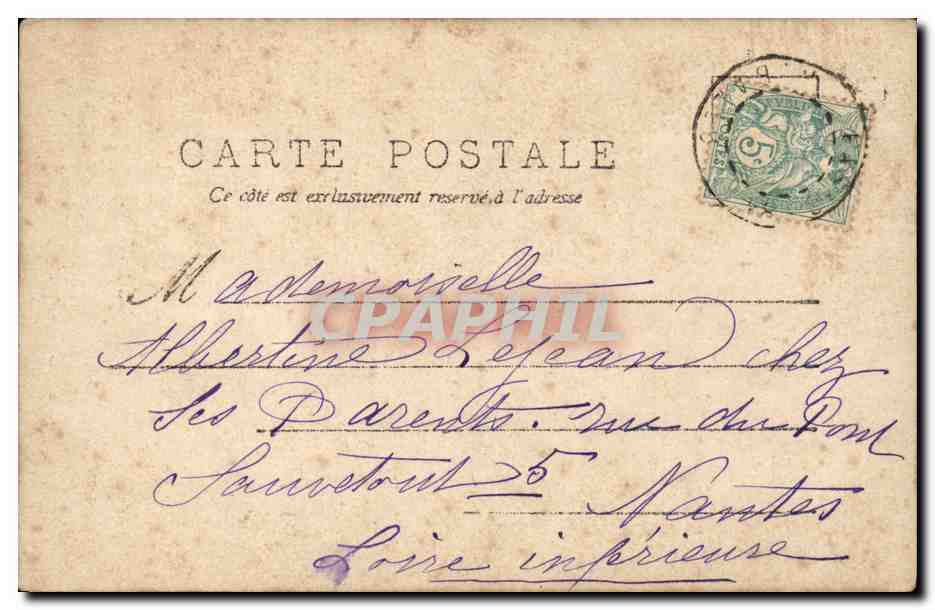 CARTE POSTALE
Ce côté est exclusivement reservé à l'adresse
5
Mademoiselle
CPAPHIL
Albertine Lejean chez
Ses Parents. rue du Pont
Sauvetout 5
Nantes
Loire inférieure